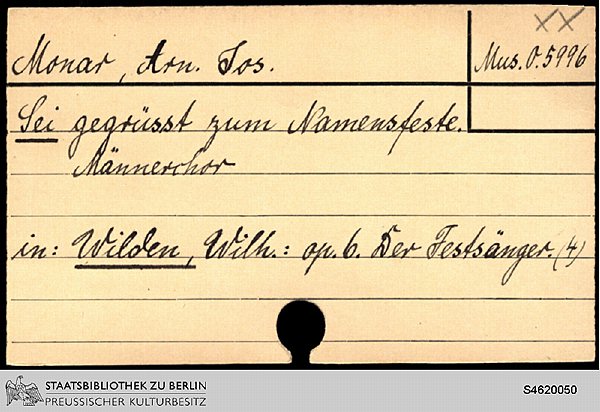 XX
Monar, Arn. Jos.
Mus. O. 5996
Sei gegrüsst zum Namensfeste.
Männerchor
in: Wilden, Wilh.: op. 6. Der Festsänger. (4)
STAATSBIBLIOTHEK ZU BERLIN
PREUSSISCHER KULTURBESITZ
S4620050